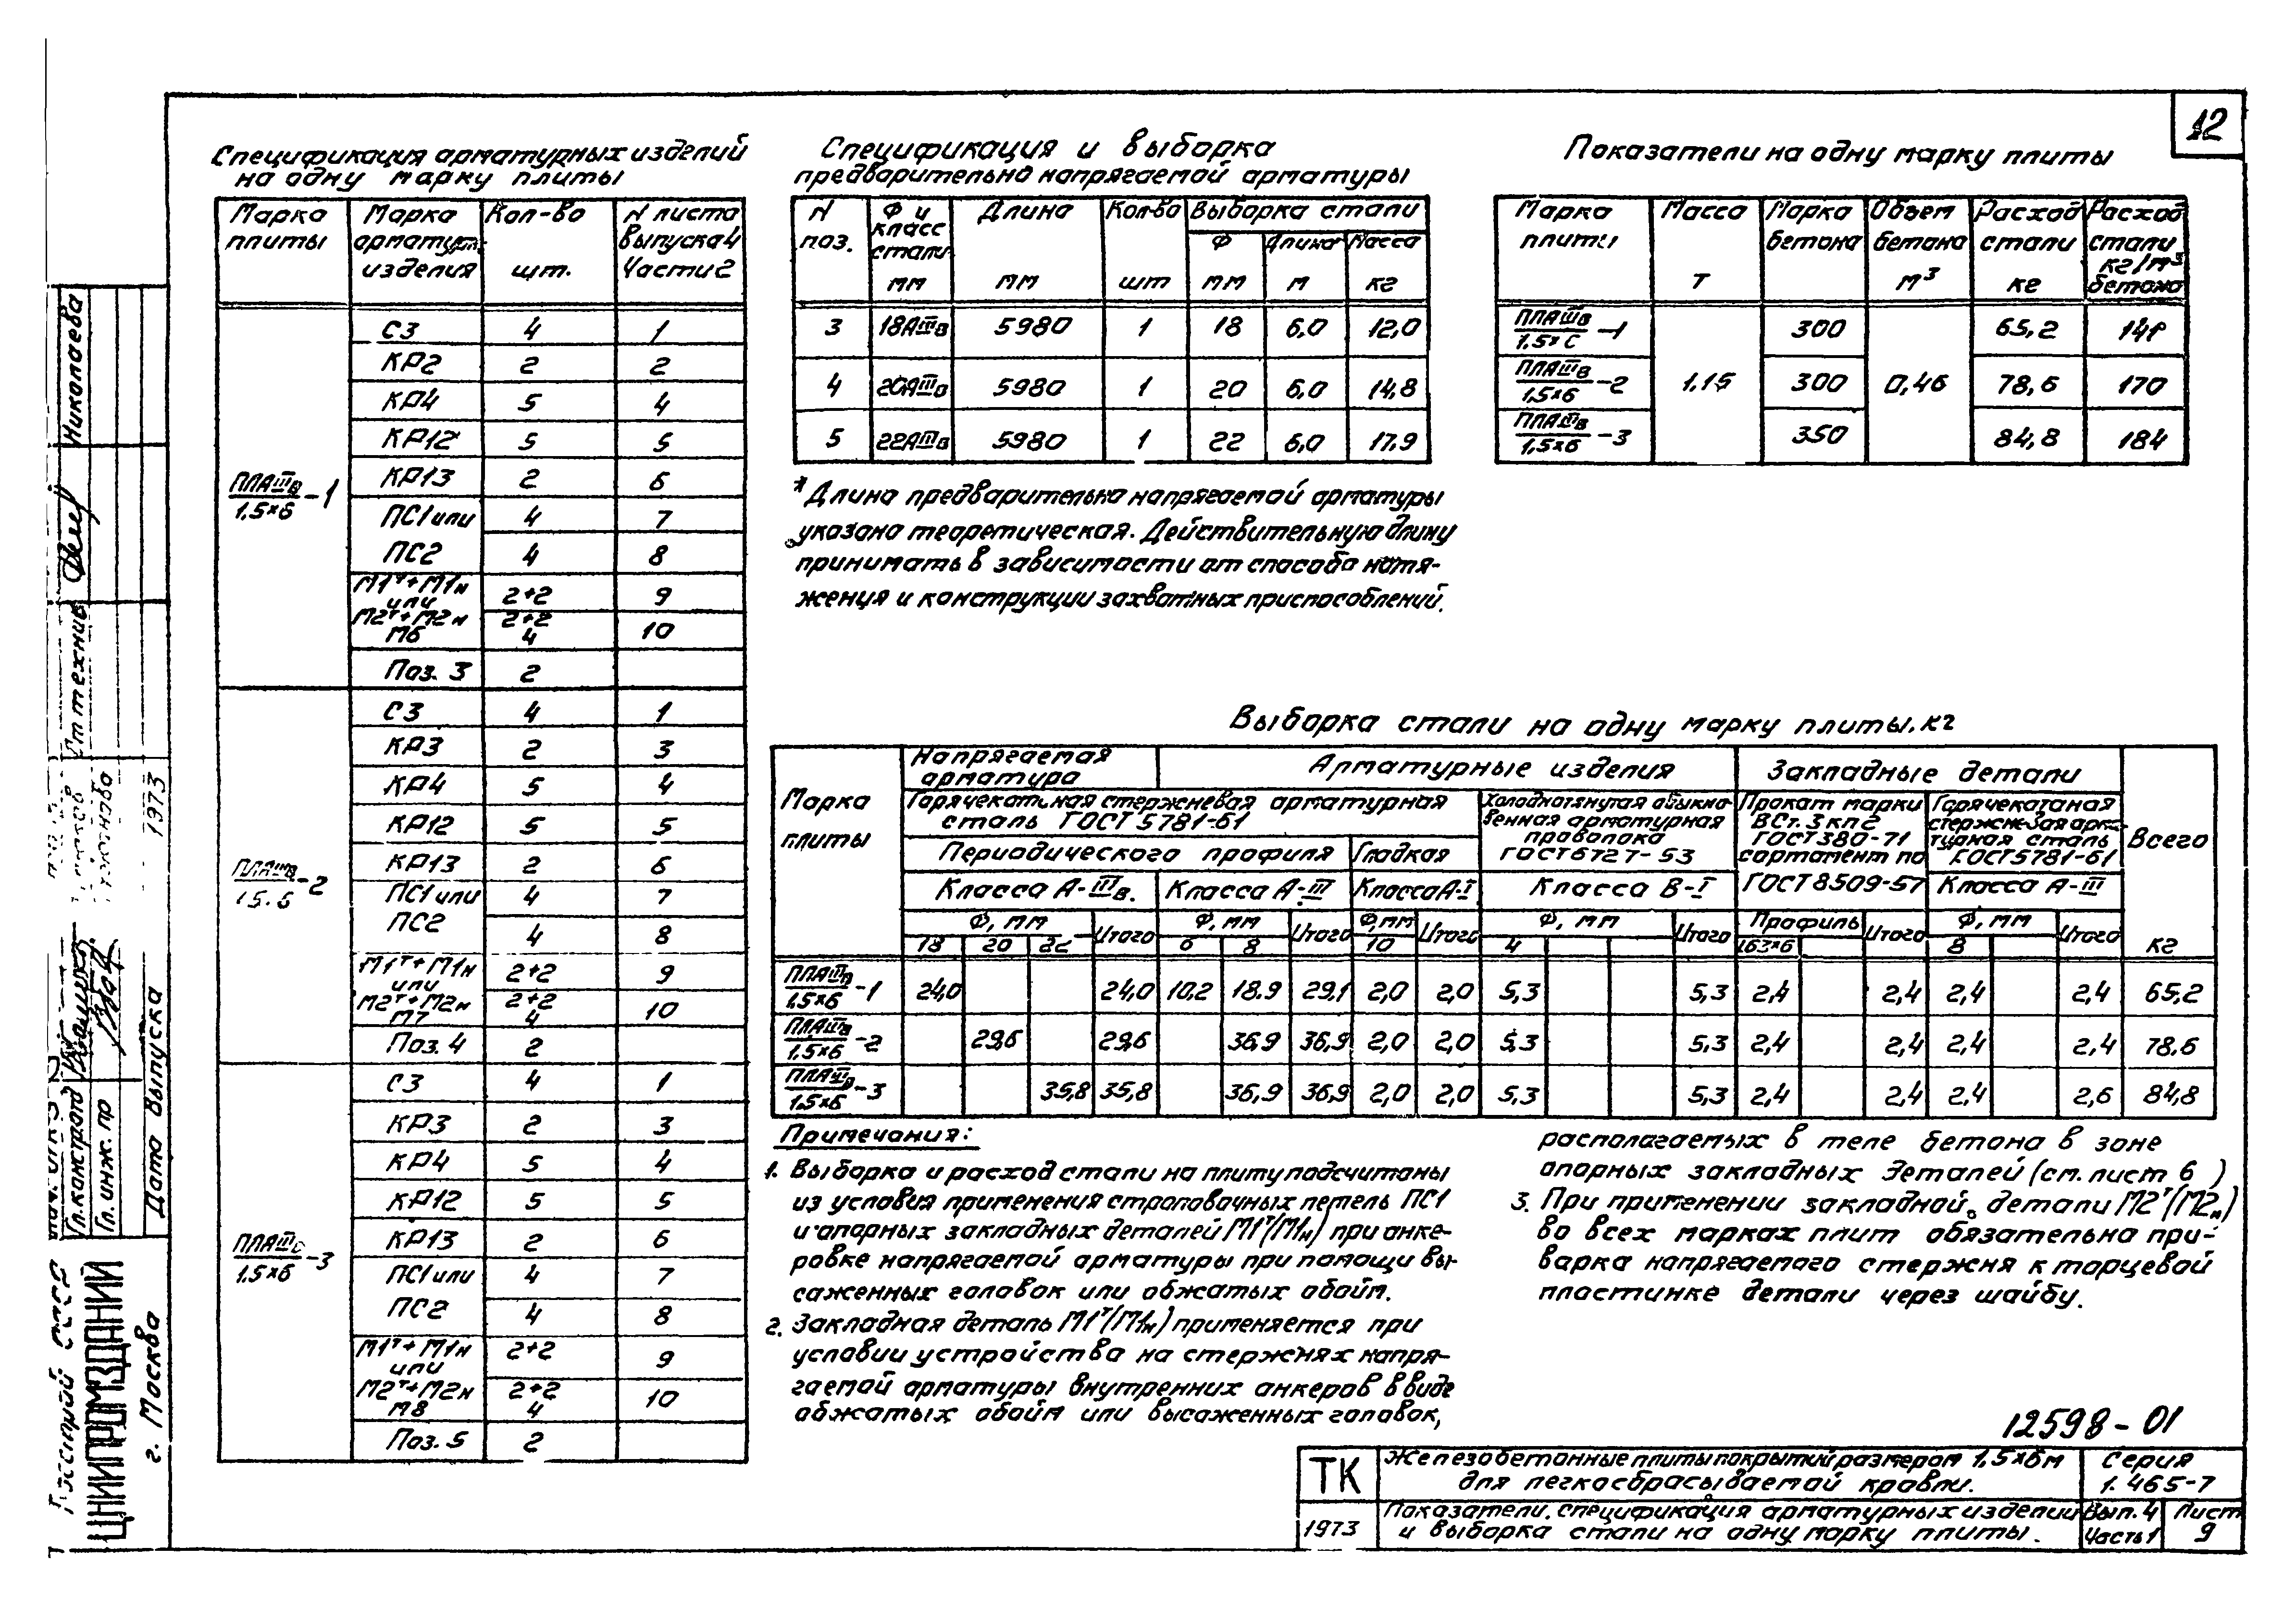 12
Спецификация арматурных изделий
на одну марку плиты
Марка плиты | Марка арматурн. изделия | Кол-во шт. | N листа выпуска 4 Части 2
ПЛАIIIв/1.5×6 -1
С3 4 1
КР2 2 2
КР4 5 4
КР12 5 5
КР13 2 6
ПС1 или 4 7
ПС2 4 8
М1т+М1н 2+2 9
или
М2т+М2н 2+2
М6 4 10
Поз. 3 2
ПЛАIIIв/1.5×6 -2
С3 4 1
КР3 2 3
КР4 5 4
КР12 5 5
КР13 2 6
ПС1 или 4 7
ПС2 4 8
М1т+М1н 2+2 9
или
М2т+М2н 2+2
М7 4 10
Поз. 4 2
ПЛАIIIв/1.5×6 -3
С3 4 1
КР3 2 3
КР4 5 4
КР12 5 5
КР13 2 6
ПС1 или 4 7
ПС2 4 8
М1т+М1н 2+2 9
или
М2т+М2н 2+2
М8 4 10
Поз. 5 2
Спецификация и выборка
предварительно напрягаемой арматуры
N поз. | Ф и класс стали мм | Длина мм | Кол-во шт | Выборка стали
Ф мм | Длина м | Масса кг
3 18АIIIв 5980 1 18 6,0 12,0
4 20АIIIв 5980 1 20 6,0 14,8
5 22АIIIв 5980 1 22 6,0 17.9
* Длина предварительно напрягаемой арматуры
указана теоретическая. Действительную длину
принимать в зависимости от способа натя-
жения и конструкции захватных приспособлений.
Показатели на одну марку плиты
Марка плиты | Масса Т | Марка бетона | Объем бетона м³ | Расход стали кг | Расход стали кг/м³ бетона
ПЛАIIIв/1.5×6 -1 300 65,2 141
ПЛАIIIв/1,5×6 -2 1.15 300 0,46 78,6 170
ПЛАIIIв/1,5×6 -3 350 84,8 184
Выборка стали на одну марку плиты, кг
Марка плиты | Напрягаемая арматура | Арматурные изделия | Закладные детали | Всего кг
Горячекатаная стержневая арматурная сталь ГОСТ 5781-61 | Холоднотянутая обыкновенная арматурная проволока ГОСТ 6727-53 | Прокат марки ВСт.3кп2 ГОСТ 380-71 сортамент по ГОСТ 8509-57 | Горячекатаная стержневая арматурная сталь ГОСТ 5781-61
Периодического профиля | Гладкая
Класса А-IIIв. | Класса А-III | Класса А-I | Класса В-I | Класса А-III
Ф, мм Итого | Ф, мм Итого | Ф, мм Итого | Ф, мм Итого | Профиль Итого | Ф, мм Итого
18 20 22 | 6 8 | 10 | 4 | L63×6 | 8
ПЛАIIIв/1.5×6 -1 24,0 24,0 10,2 18.9 29,1 2,0 2,0 5,3 5,3 2,4 2,4 2,4 2,4 65,2
ПЛАIIIв/1.5×6 -2 29,6 29,6 36,9 36,9 2,0 2,0 5,3 5,3 2,4 2,4 2,4 2,4 78,6
ПЛАIIIв/1.5×6 -3 35,8 35,8 36,9 36,9 2,0 2,0 5,3 5,3 2,4 2,4 2,4 2,6 84,8
Примечания:
1. Выборка и расход стали на плиту подсчитаны
из условия применения строповочных петель ПС1
и опорных закладных деталей М1т(М1н) при анке-
ровке напрягаемой арматуры при помощи вы-
саженных головок или обжатых обойм.
2. Закладная деталь М1т(М1н) применяется при
условии устройства на стержнях напря-
гаемой арматуры внутренних анкеров в виде
обжатых обойм или высаженных головок,
располагаемых в теле бетона в зоне
опорных закладных деталей (см. лист 6 )
3. При применении закладной детали М2т(М2н)
во всех марках плит обязательна при-
варка напрягаемого стержня к торцевой
пластинке детали через шайбу.
12598-01
ТК
1973
Железобетонные плиты покрытий размером 1,5×6м
для легкосбрасываемой кровли.
Серия
1.465-7
Показатели, спецификация арматурных изделий
и выборка стали на одну марку плиты.
Вып. 4
Часть 1
Лист
9
Госстрой СССР
ЦНИИПРОМЗДАНИЙ
г. Москва
Гл. констр.
Гл. инж. пр
Дата выпуска
1973
Ст техник
Николаева